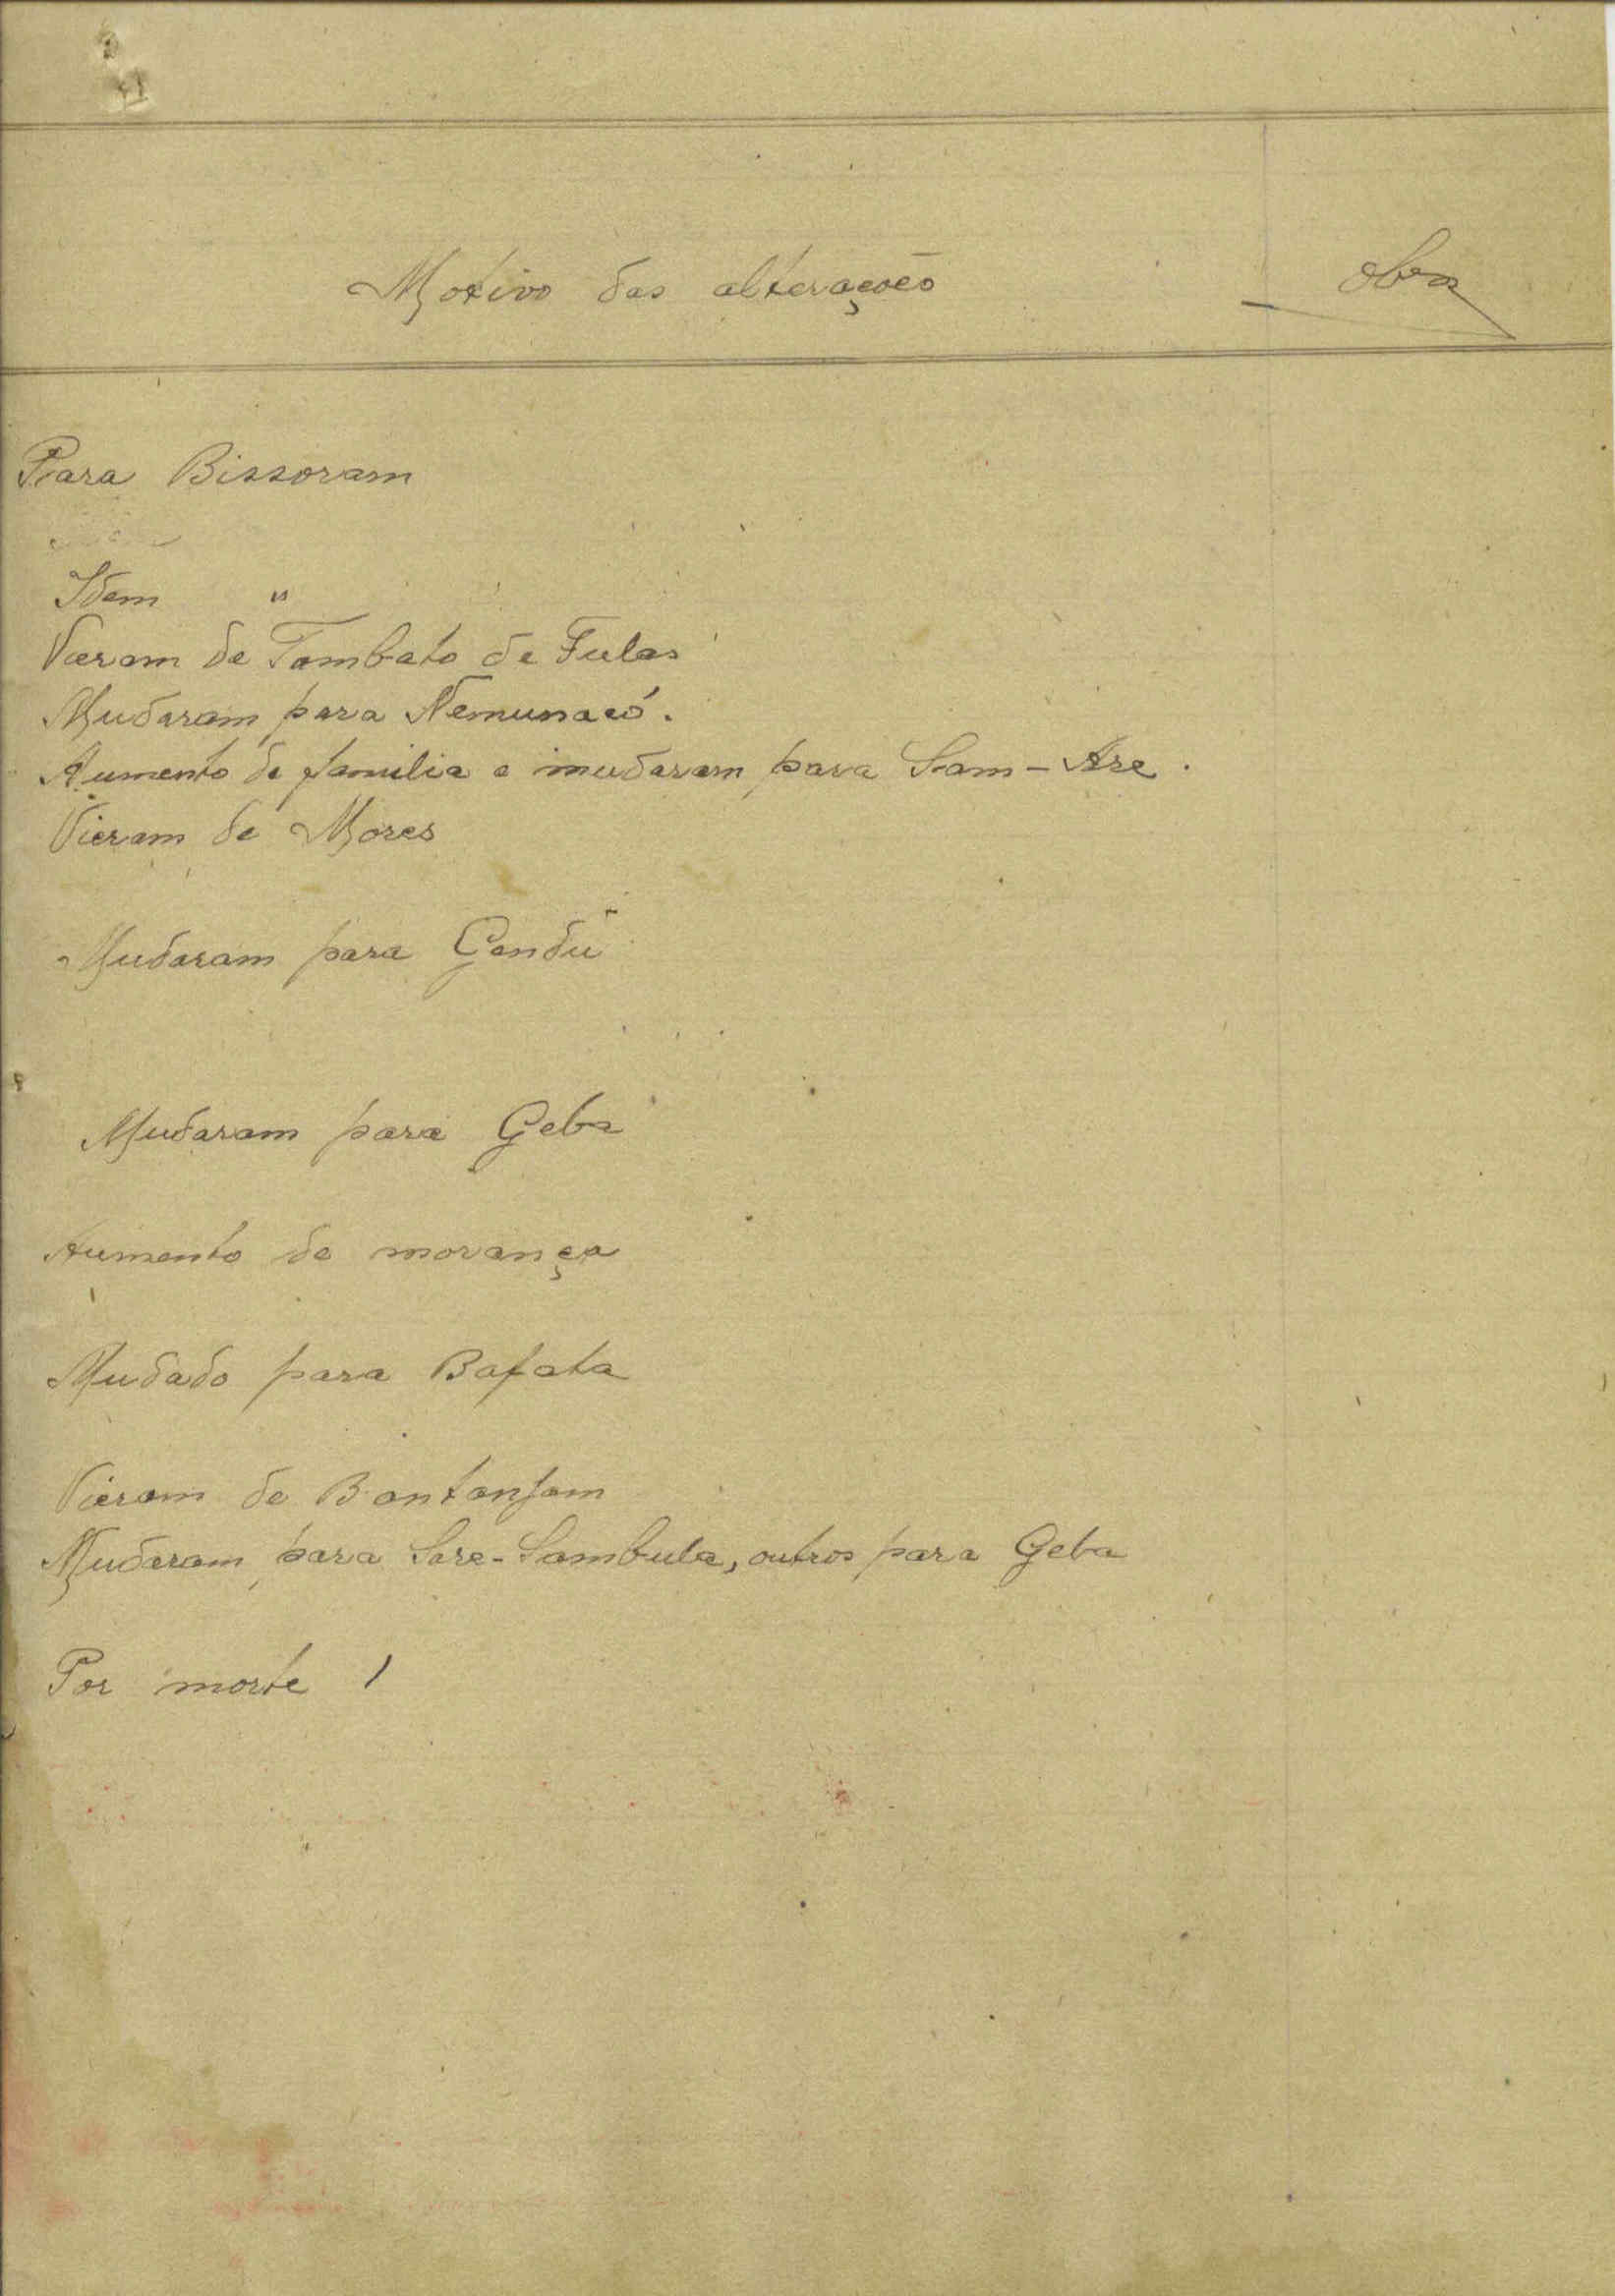 Motivo das alterações
Obs
Para Bissoram
Idem "
Vieram de Tambato de Fulas
Mudaram para Nemunacó.
Aumento de familia e mudaram para Sam-Are.
Vieram de Mores
Mudaram para Gendú
Mudaram para Geba
Aumento de morança
Mudado para Bafata
Vieram de Bantanjam
Mudaram para Sare-Sambula, outros para Geba
Por morte 1